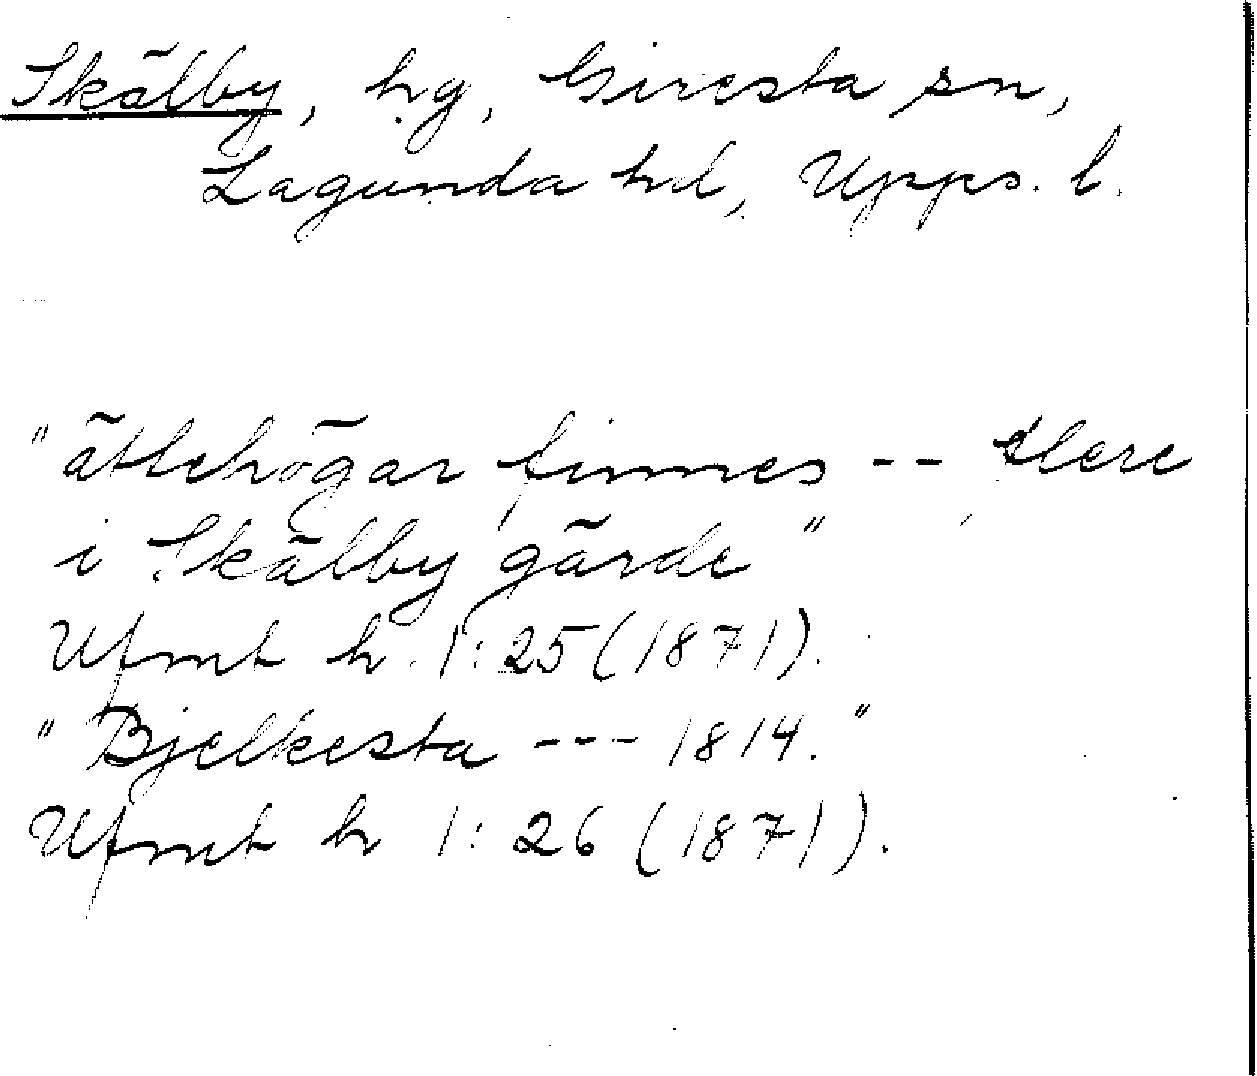 Skälby, hg, Giresta sn,
Lagunda hd, Upps. l.
"ättehögar finnes -- flere
i Skälby gärde"
Ufmt h. 1: 25 (1871).
"Bjelkesta --- 1814."
Ufmt h 1: 26 (1871).